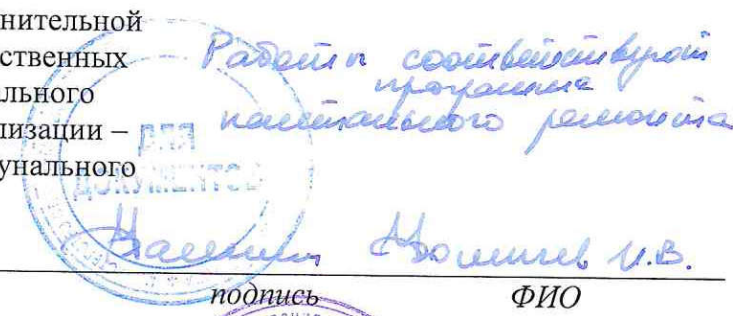 нительной
ственных
ального
лизации –
унального
Работы соответствуют
программе
капитального ремонта
ДЛЯ
ДОКУМЕНТОВ
И.В.
подпись
ФИО